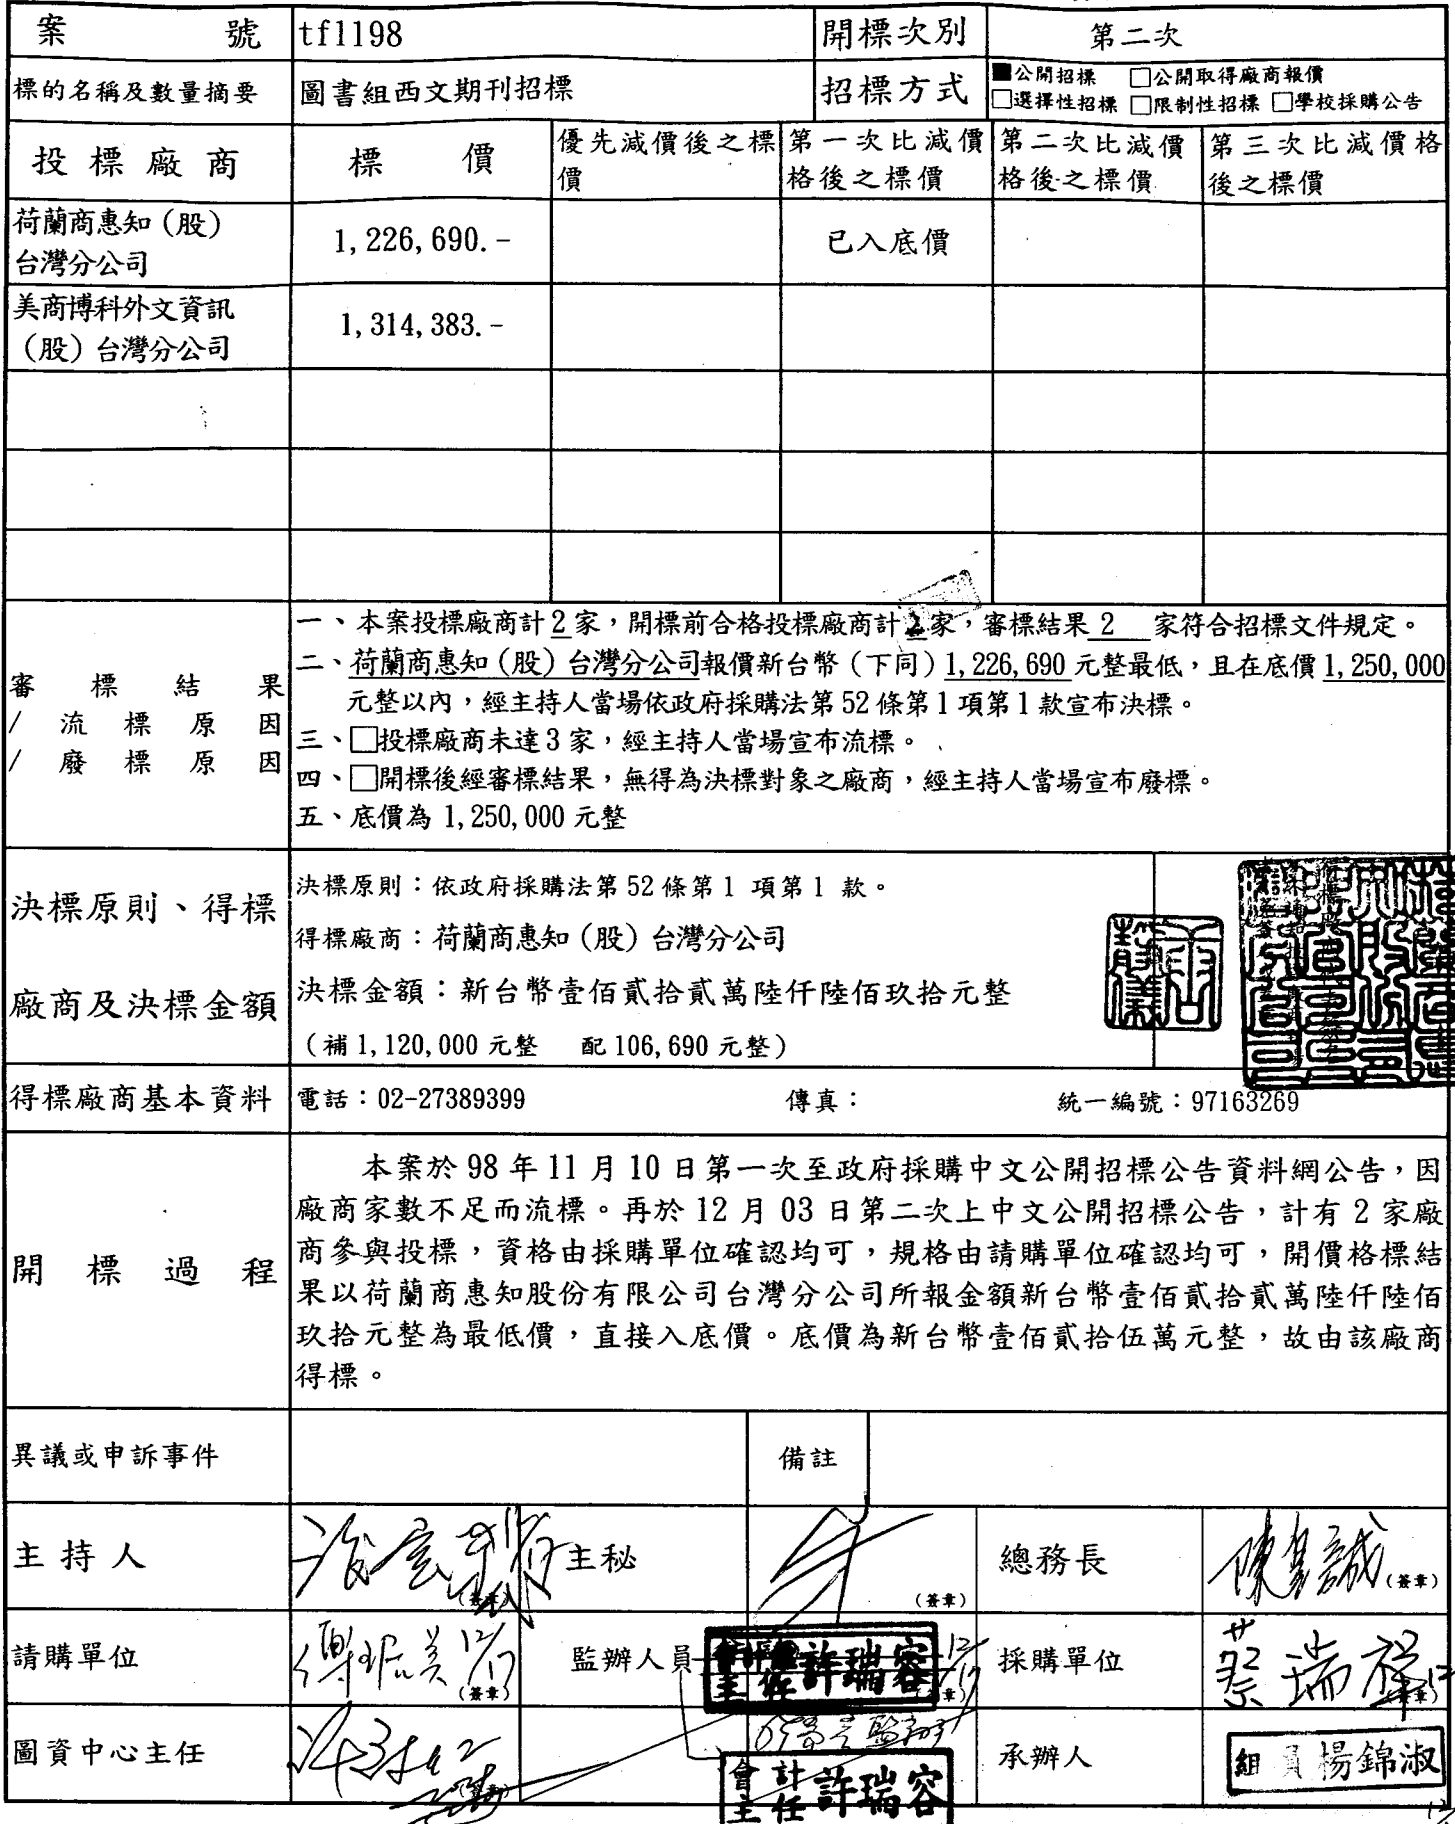 案號 tf1198 開標次別 第二次
標的名稱及數量摘要 圖書組西文期刊招標 招標方式 ■公開招標 □公開取得廠商報價
□選擇性招標 □限制性招標 □學校採購公告
投標廠商 標價 優先減價後之標價 第一次比減價格後之標價 第二次比減價格後之標價 第三次比減價格後之標價
荷蘭商惠知(股)
台灣分公司 1,226,690.- 已入底價
美商博科外文資訊
(股)台灣分公司 1,314,383.-
審標結果
/流標原因
/廢標原因
一、本案投標廠商計2家,開標前合格投標廠商計2家,審標結果 2 家符合招標文件規定。
二、荷蘭商惠知(股)台灣分公司報價新台幣(下同)1,226,690元整最低,且在底價1,250,000
元整以內,經主持人當場依政府採購法第52條第1項第1款宣布決標。
三、□投標廠商未達3家,經主持人當場宣布流標。
四、□開標後經審標結果,無得為決標對象之廠商,經主持人當場宣布廢標。
五、底價為 1,250,000 元整
決標原則、得標
廠商及決標金額
決標原則:依政府採購法第52條第1 項第1 款。
得標廠商:荷蘭商惠知(股)台灣分公司
決標金額:新台幣壹佰貳拾貳萬陸仟陸佰玖拾元整
(補1,120,000元整 配106,690元整)
得標廠商基本資料 電話:02-27389399 傳真: 統一編號:97163269
開標過程
本案於98年11月10日第一次至政府採購中文公開招標公告資料網公告,因
廠商家數不足而流標。再於12月03日第二次上中文公開招標公告,計有2家廠
商參與投標,資格由採購單位確認均可,規格由請購單位確認均可,開價格標結
果以荷蘭商惠知股份有限公司台灣分公司所報金額新台幣壹佰貳拾貳萬陸仟陸佰
玖拾元整為最低價,直接入底價。底價為新台幣壹佰貳拾伍萬元整,故由該廠商
得標。
異議或申訴事件 備註
主持人 (簽章) 主秘 (簽章) 總務長 (簽章)
請購單位 12/17 (簽章) 監辦人員 會計主任 許瑞容 12/17 (簽章) 採購單位 蔡瑞祥
圖資中心主任 會計主任 許瑞容 承辦人 組員楊錦淑